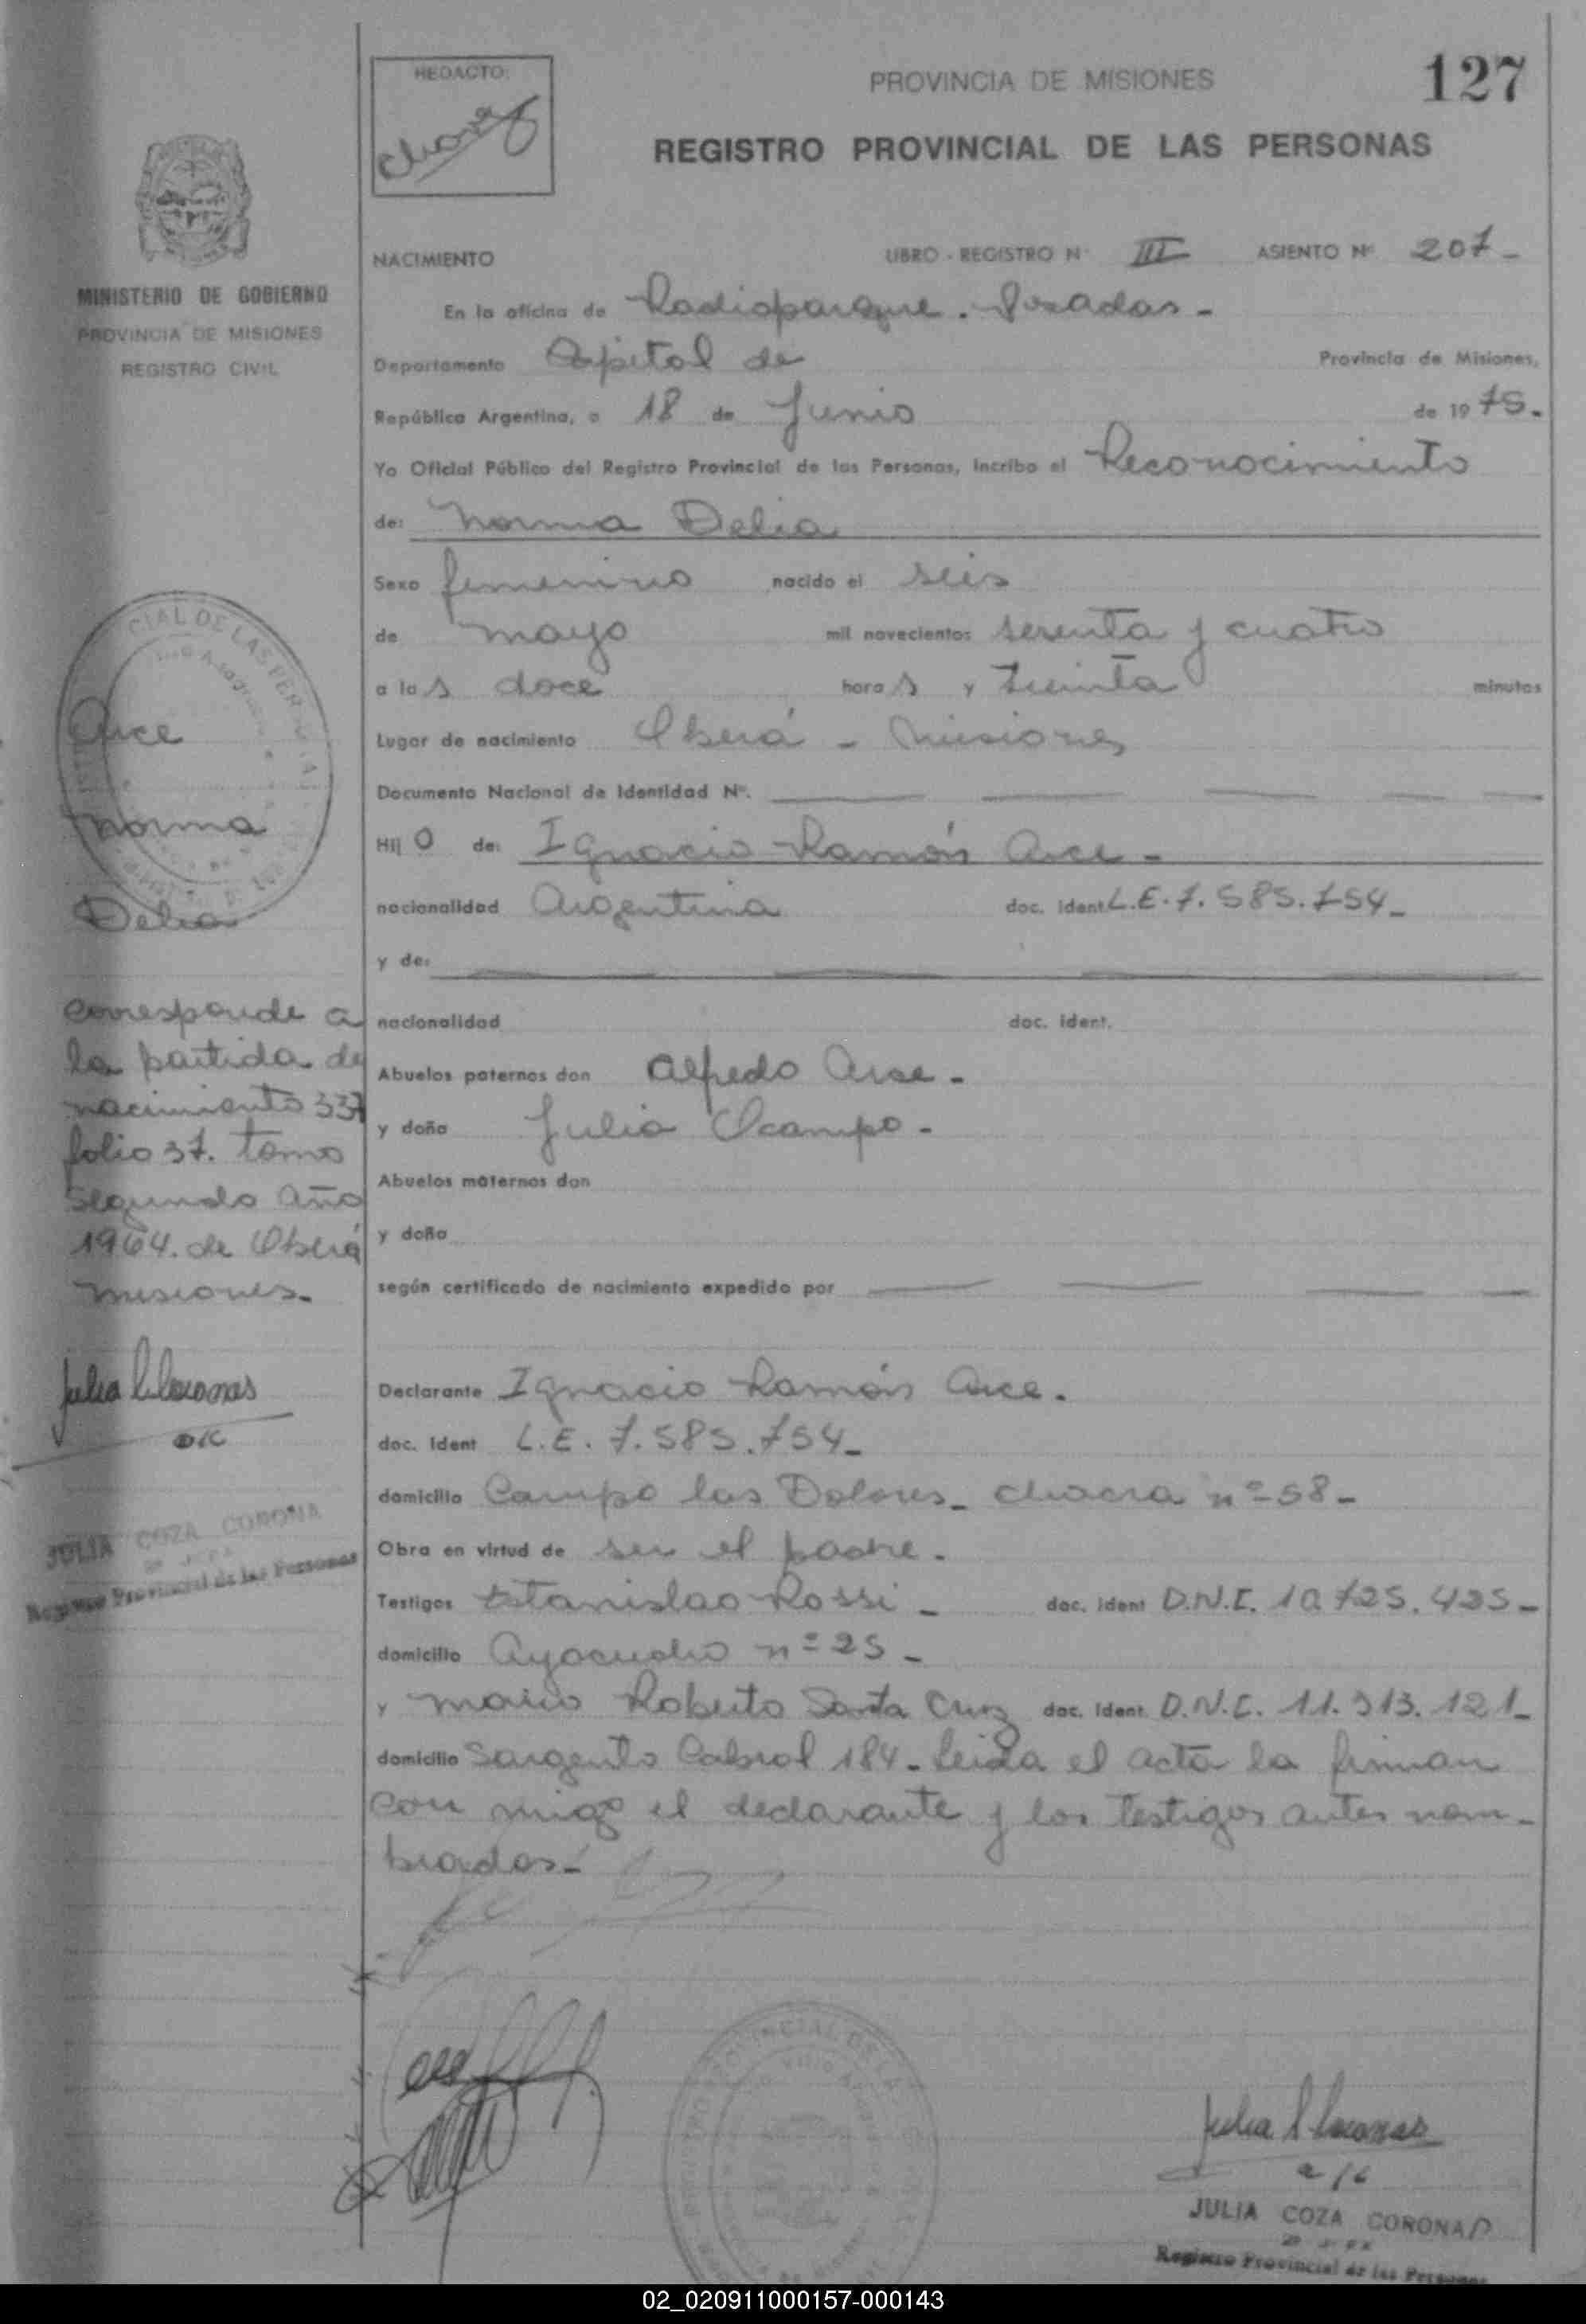 REDACTO:
Chavez
PROVINCIA DE MISIONES
127
REGISTRO PROVINCIAL DE LAS PERSONAS
MINISTERIO DE GOBIERNO
PROVINCIA DE MISIONES
REGISTRO CIVIL
NACIMIENTO LIBRO - REGISTRO N° III ASIENTO N° 207-
En la oficina de Radioparque. Posadas-
Departamento Capital de Provincia de Misiones,
República Argentina, a 18 de Junio de 1975.
Yo Oficial Público del Registro Provincial de las Personas, incribo el Reconocimiento
de: Norma Delia
Sexo femenino nacido el seis
de mayo mil novecientos sesenta y cuatro
a las doce horas y treinta minutos
Lugar de nacimiento Oberá - Misiones
Documento Nacional de Identidad N°.
Hijo de: Ignacio Ramón Arce-
nacionalidad Argentina doc. ident. L.E. 7.585.754-
y de:
nacionalidad doc. ident.
Abuelos paternos don Alfredo Arce-
y doña Julia Ocampo-
Abuelos maternos don
y doña
según certificado de nacimiento expedido por
Declarante Ignacio Ramón Arce.
doc. ident L.E. 7.585.754-
domicilio Campo las Dolores- chacra n°-58-
Obra en virtud de ser el padre.
Testigos Estanislao Rossi- doc. ident D.N.I. 10.725.425-
domicilio Ayacucho n°25-
y Mario Roberto Santa Cruz doc. ident. D.N.I. 11.313.121-
domicilio Sargento Cabral 184- Leida el acta la firman
con migo el declarante y los testigos antes nom-
brados-
CIAL DE LAS PER
Arce
Norma
Delia
corresponde a
la partida de
nacimiento 337
folio 37. tomo
segundo año
1964. de Oberá
Misiones-
JULIA COZA CORONA
Registro Provincial de las Personas
JULIA COZA CORONA
Registro Provincial de las Personas
02_020911000157-000143